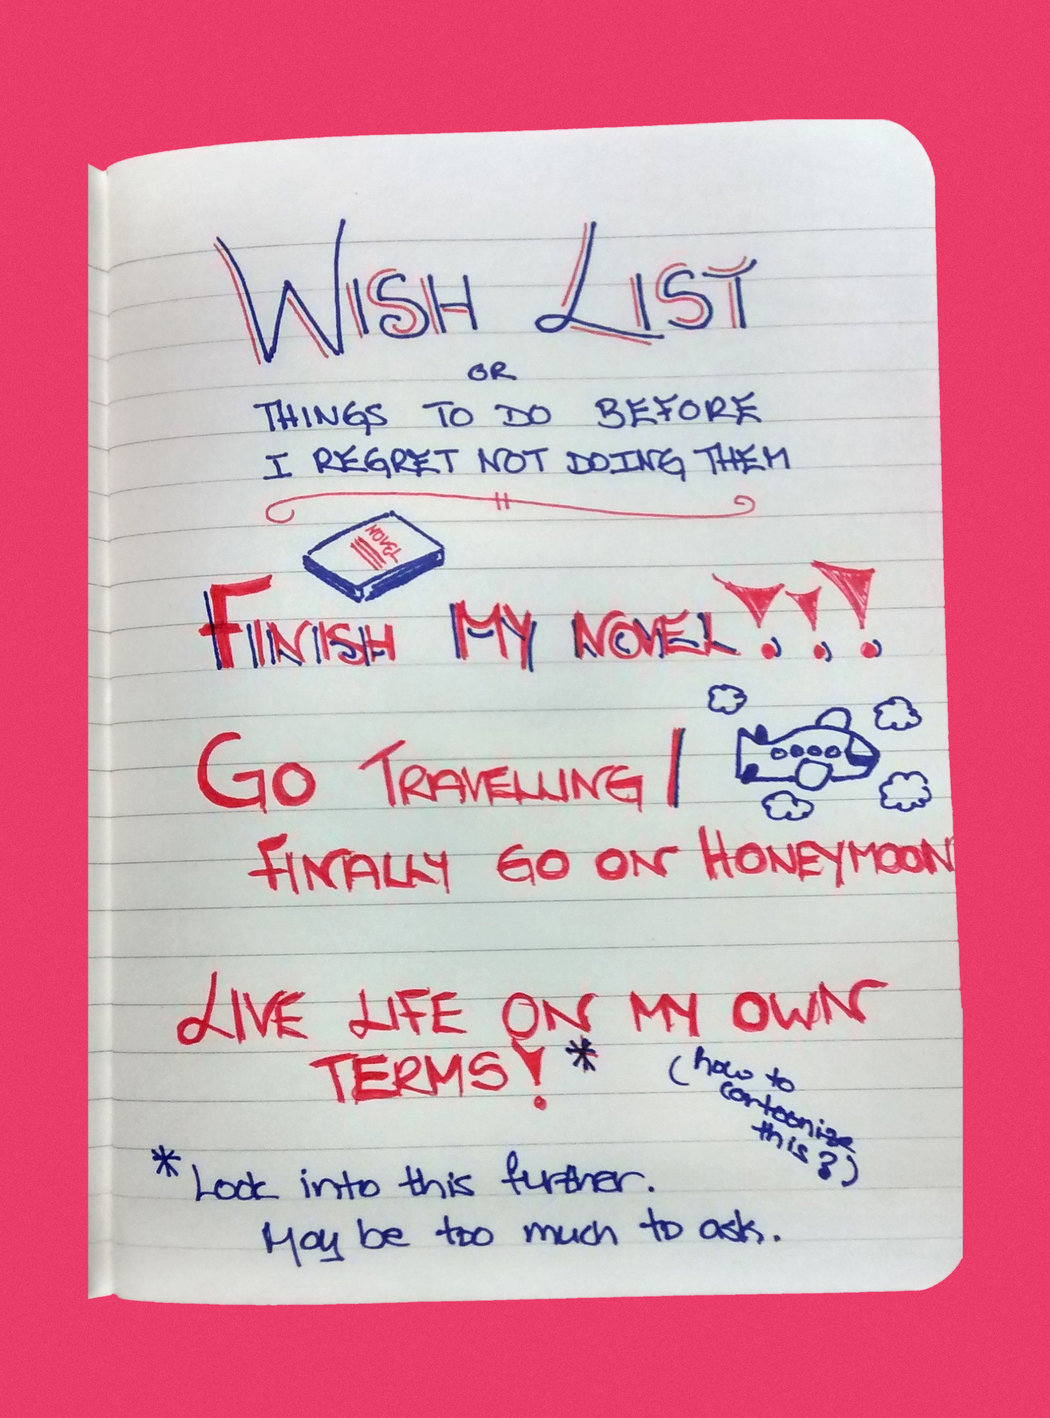 WISH LIST
OR
THINGS TO DO BEFORE
I REGRET NOT DOING THEM
NOVEL
FINISH MY NOVEL!!!
GO TRAVELLING /
FINALLY GO ON HONEYMOON
LIVE LIFE ON MY OWN
TERMS! *
(how to
cartoonize
this?)
* Look into this further.
May be too much to ask.